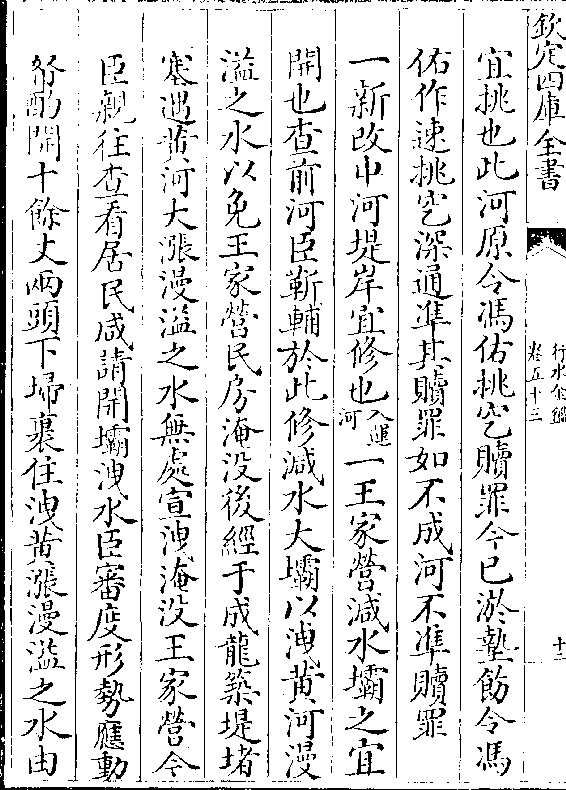 欽定四庫全書
行水金鑑
卷五十三
十二
宜挑也此河原令馮佑挑空贖罪今已淤墊飭令馮
佑作速挑空深通準其贖罪如不成河不準贖罪
一新改中河堤岸宜修也入運河一王家營減水壩之宜
開也查前河臣靳輔於此修減水大壩以洩黃河漫
溢之水以免王家營民房淹没後經于成龍築堤堵
塞遇黃河大漲漫溢之水無處宣洩淹没王家營今
臣親往查看居民咸請開壩洩水臣審度形勢應動
帑酌開十餘丈兩頭下埽裹住洩黃漲漫溢之水由